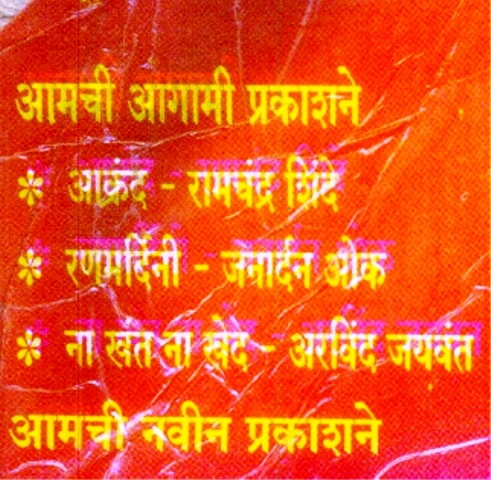 आमची आगामी प्रकाशने
* आक्रंद - रामचंद्र शिंदे
* रणमर्दिनी - जनार्दन ओक
* ना खंत ना खेद - अरविंद जयवंत
आमची नवीन प्रकाशने